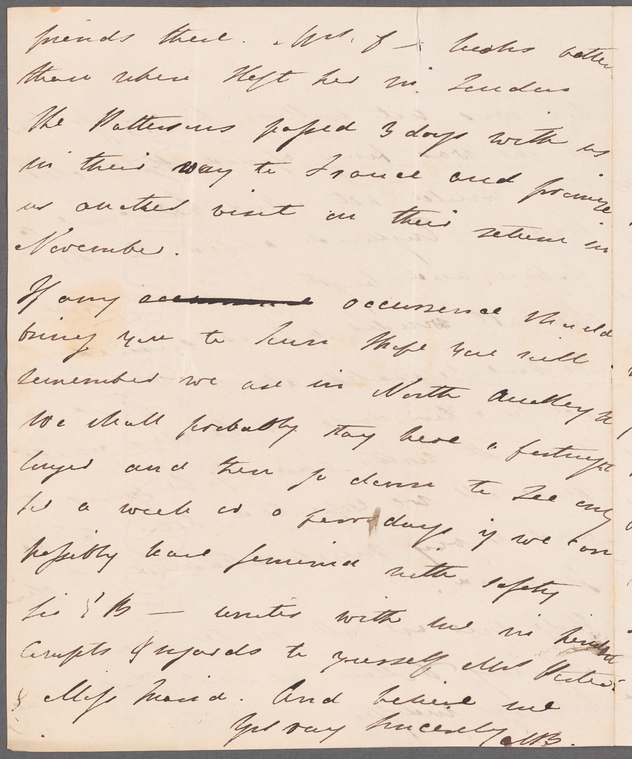 friends there. Mrs. f — looks better
than when I left her in London
The Pattersons passed 3 days with us
in their way to France and promise
us another visit on their return in
November.
If any occurrence should
bring you to I hope you will
remember we are in North Audley St
We shall probably stay here a fortnight
longer and then go down to See my
for a week or a few days if we can
possibly leave with safety
Sir B — unites with me in kindest
Compts & regards to yourself Mrs
& Miss And believe me
Yrs very Sincerely MB.